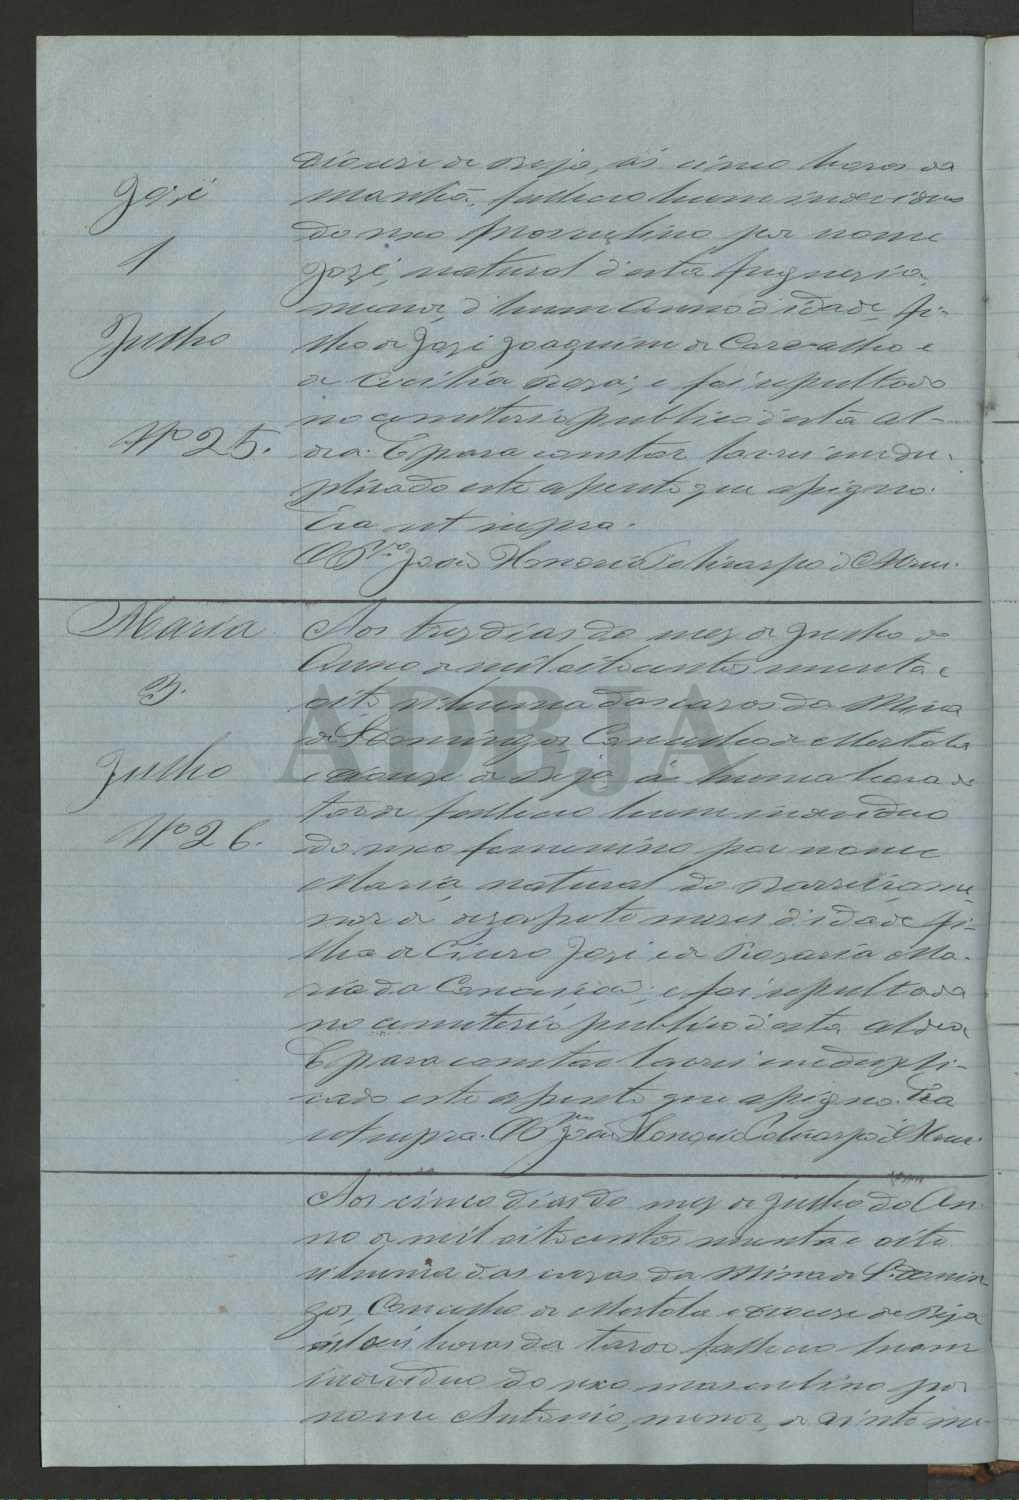 José
1
Julho
Nº 25.
Diocese de Beja, ás cinco horas da
manhã, falleceo hum individuo
do sexo masculino por nome
José, natural d'esta freguezia,
menor, d'hum Anno d'idade, fi-
lho de José Joaquim de Carvalho e
de Cecilia Roza; e foi sepultado
no cemiterio publico d'esta al-
dea. E para constar lavrei em du-
plicado este assento que assigno.
Era ut supra.
O Pr.º João Honorio Policarpo d'
Maria
3.
Julho
Nº 26.
Aos tres dias do mez de Julho do
Anno de mil oito centos noventa e
oito n'huma das cazas da Mina
de S. Domingos, Concelho de Mertola
e Diocese de Beja, á huma hora da
tarde falleceo hum individuo
do sexo femenino por nome
Maria, natural do Barreiro, me-
nor de dezassete mezes d'idade, fi-
lha de José e de Rozaria Ma-
ria da Conceição; e foi sepultada
no cemiterio publico d'esta aldea.
E para constar lavrei em dupli-
cado este assento que assigno. Era
ut supra. O Pr.º João Honorio Policarpo d'
Aos cinco dias do mez de Julho do An-
no de mil oito centos noventa e oito
n'huma das cazas da Mina de S. Domin-
gos, Concelho de Mertola e Diocese de Beja
ás seis horas da tarde falleceo hum
individuo do sexo masculino por
nome Antonio, menor, de vinte me-
ADBJA